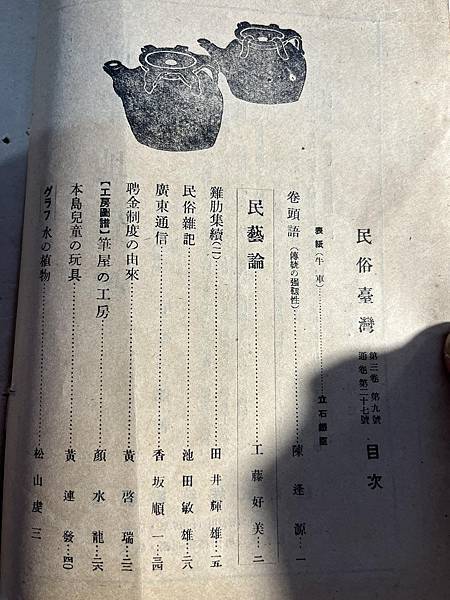 民俗臺灣 第三卷 第九號 通卷第二十七號 目次
表紙(牛車)……立石鐵臣
卷頭語(傳統の强靱性)……陳逢源…一
民藝論……工藤好美…二
雞肋集續(二)……田井輝雄…一五
民俗雜記……池田敏雄…二八
廣東通信……香坂順一…三四
聘金制度の由來……黃啓瑞…三三
【工房圖譜】筆屋の工房……顏水龍…二六
本島兒童の玩具……黃連發…四〇
グラフ 水の植物……松山虔三